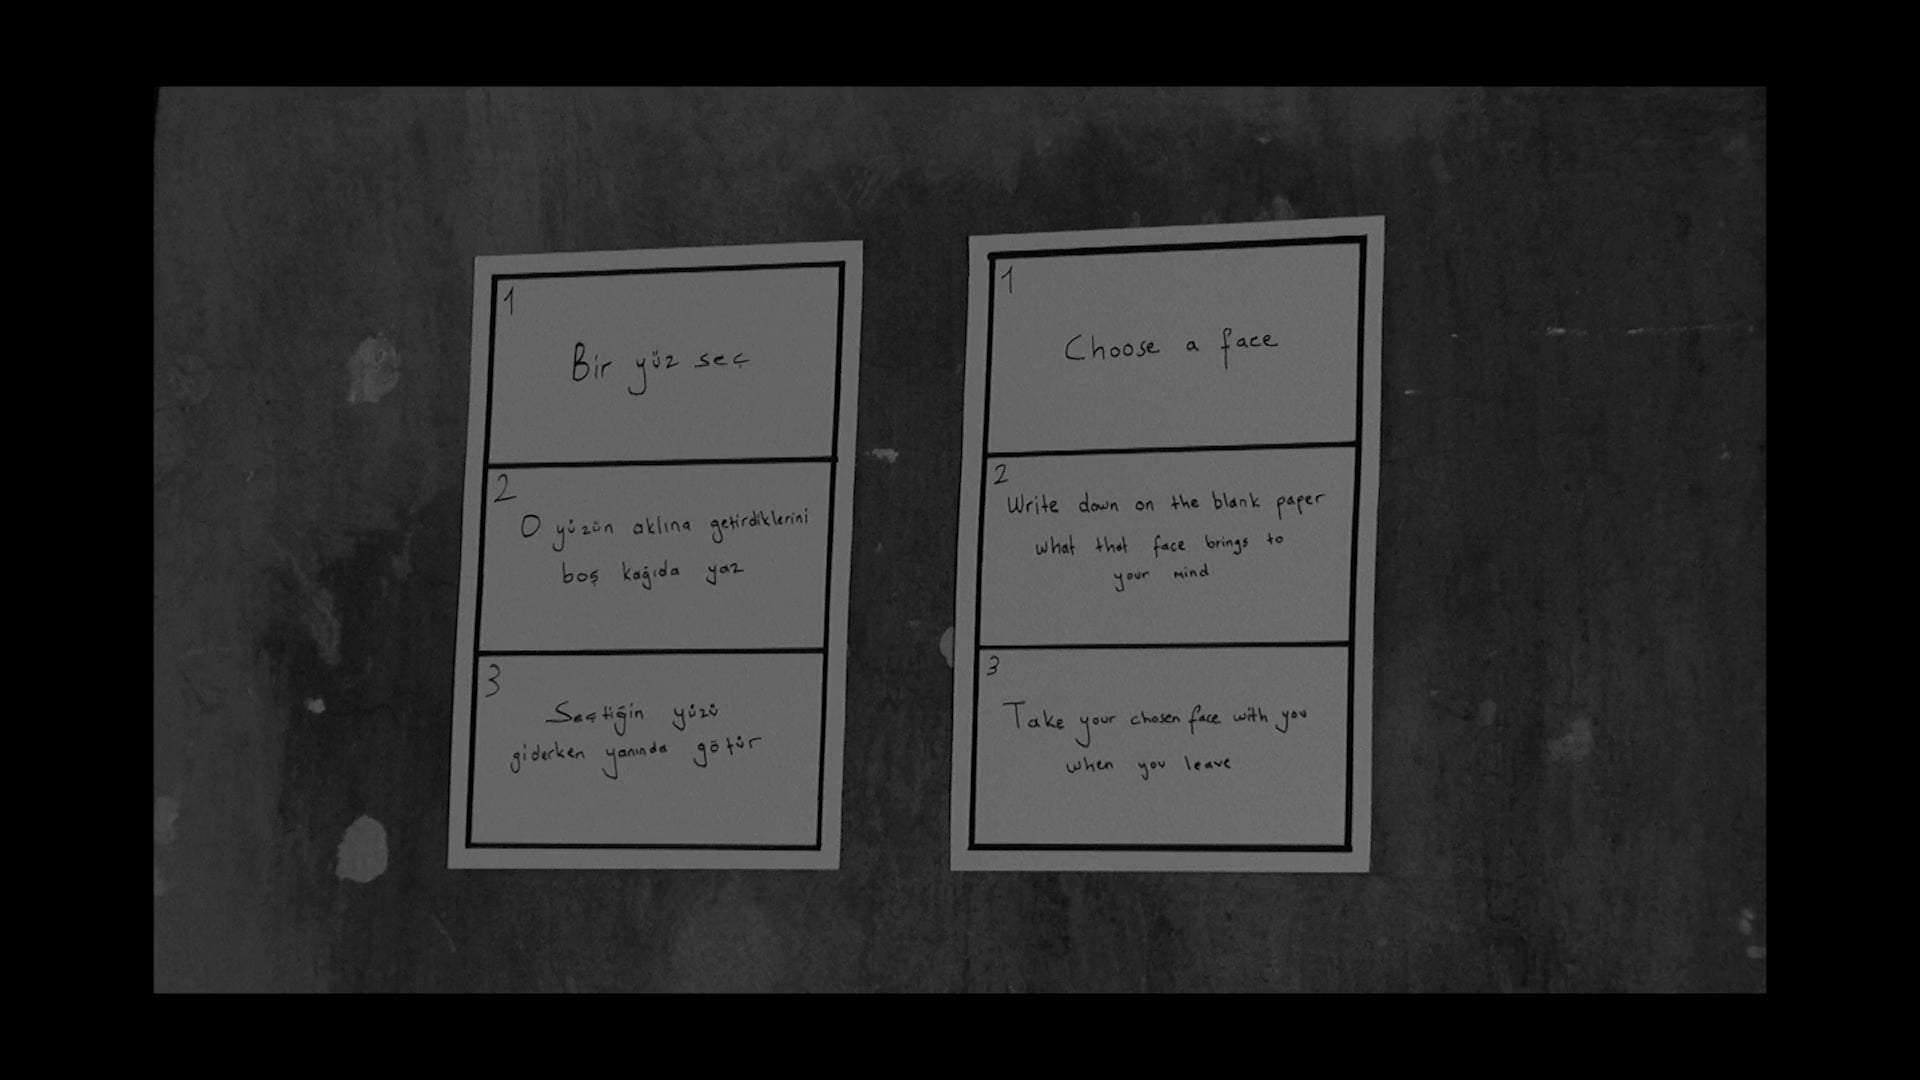 1
Bir yüz seç
2
O yüzün aklına getirdiklerini
boş kağıda yaz
3
Seçtiğin yüzü
giderken yanında götür
1
Choose a face
2
Write down on the blank paper
what that face brings to
your mind
3
Take your chosen face with you
when you leave